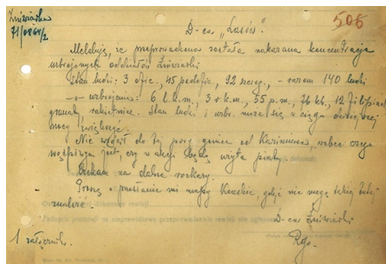 Żniwiarka
71/0264/2
D-ca "Lasów"
505
Melduję, że przeprowadzona została nakazana koncentracja
uzbrojonych oddziałów Żniwiarki
Stan ludzi: 3 ofic, 45 podofic, 92 szereg. - razem 140 ludzi
-"- uzbrojenia: 6 l.k.m, 3 r.k.m, 35 p.m, 76 kb, 12 filipinek
granaty, rakietnice. Stan ludzi i uzbr. może się w ciągu
nocy zwiększyć.
Nie wrócił do tej pory goniec od Kazimierza, wobec czego
jest, czy w akcji będą użyte
Czekam na dalsze rozkazy.
Proszę o przesłanie mi mapy gdyż nie mogę takiej tutaj
znaleźć.
D-ca Żniwiarki
1 załącznik.